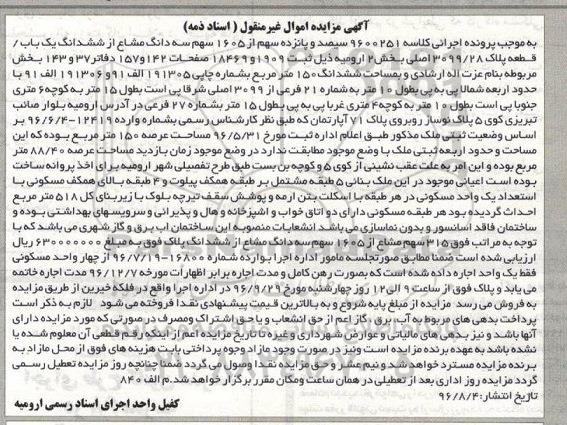 آگهی مزایده اموال غیرمنقول ( اسناد ذمه)
به موجب پرونده اجرائی کلاسه 9600251 سیصد و پانزده سهم از 1605 سهم سه دانگ مشاع از ششدانگ یک باب /
قطعه پلاک 3099/28 اصلی بخش 2 ارومیه ذیل ثبت 1909 و 18469 صفحات 142 و 157 دفاتر 37 و 143 بخش
مربوطه بنام عزت اله ارشادی و بمساحت ششدانگ 150 متر مربع بشماره چاپی 191305 الف 91 و 191306 الف 91 با
حدود اربعه شمالا پی به پی بطول 10 متر به شماره 21 فرعی از 3099 اصلی شرقا پی است بطول 15 متر به کوچه 6 متری
جنوبا پی است بطول 10 متر به کوچه 4 متری غربا پی به پی بطول 15 متر بشماره 27 فرعی در آدرس ارومیه بلوار صائب
تبریزی کوی 5 پلاک نوساز و روبروی پلاک 71 آپارتمان که طبق نظر کارشناس رسمی بشماره وارده 12419-96/6/4 بر
اساس وضعیت ثبتی ملک مذکور طبق اعلام اداره ثبت مورخ 96/5/31 مساحت عرصه 150 متر مربع بوده که این
مساحت و حدود اربعه ثبتی ملک با وضع موجود مطابقت ندارد در وضع موجود زمان بازدید مساحت عرصه 88/40 متر
مربع بوده و این امر به علت عقب نشینی از کوی 5 و کوچه بن بست طبق طرح تفصیلی شهر ارومیه برای اخذ پروانه ساخت
بوده است اعیانی موجود در این ملک بنائی 5 طبقه مشتمل بر طبقه همکف پیلوت و 4 طبقه بالای همکف مسکونی با
استعداد یک واحد مسکونی در هر طبقه با اسکلت بتن ارمه و پوشش سقف تیرچه بلوک با زیربنای کل 518 متر مربع
احداث گردیده بود هر طبقه مسکونی دارای دو اتاق خواب و اشپزخانه و هال و پذیرائی و سرویسهای بهداشتی بوده و
ساختمان فاقد آسانسور و بدون نماسازی می باشد انشعابات منصوبه این ساختمان اب برق و گاز شهری می باشد که با
توجه به مراتب فوق 315 سهم مشاع از 1605 سهم سه دانگ مشاع از ششدانگ پلاک فوق به مبلغ 630000000 ریال
ارزیابی شده است ضمنا مطابق صورتجلسه مامور اداره اجرا بوارده شماره 16800-96/7/19 از چهار واحد مسکونی
فقط یک واحد اجاره داده شده است که بصورت رهن کامل و مدت اجاره برابر اظهارات مورخه 96/12/7 مدت اجاره خاتمه
می یابد و پلاک فوق از ساعت 9 الی 12 روز چهارشنبه مورخ 96/9/29 در اداره اجرا واقع در فلکه خیرین از طریق مزایده
به فروش می رسد مزایده از مبلغ پایه شروع و به بالاترین قیمت پیشنهادی نقدا فروخته می شود لازم به ذکر است
پرداخت بدهی های مربوط به آب برق گاز اعم از حق انشعاب و یا حق اشتراک و مصرف در صورتی که مورد مزایده دارای
آنها باشد و نیز بدهی های مالیاتی و عوارض شهرداری و غیره تا تاریخ مزایده اعم از اینکه رقم قطعی آن معلوم شده یا
نشده باشد به عهده برنده مزایده است ونیز در صورت وجود مازاد وجوه پرداختی بابت هزینه های فوق از محل مازاد به
برنده مزایده مسترد خواهد شد و نیم عشر و حق مزایده نقدا وصول می گردد ضمنا چنانچه روز مزایده تعطیل رسمی
گردد مزایده روز اداری بعد از تعطیلی در همان ساعت ومکان مقرر برگزار خواهد شد. م الف 840
تاریخ انتشار: 96/8/4
کفیل واحد اجرای اسناد رسمی ارومیه